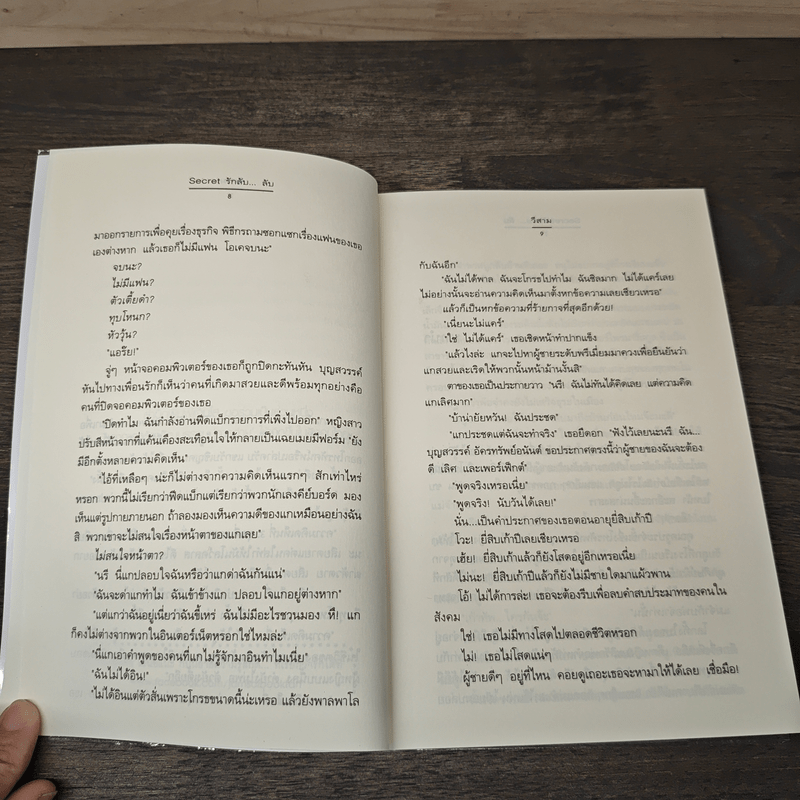 Secret รักลับ... ลับ
8
มาออกรายการเพื่อคุยเรื่องธุรกิจ พิธีกรถามซอกแซกเรื่องแฟนของเธอ
เองต่างหาก แล้วเธอก็ไม่มีแฟน โอเคจบนะ"
จบนะ?
ไม่มีแฟน?
ตัวเตี้ยดำ?
ทุบโหนก?
หัววุ้น?
"แอร๊ย!"
จู่ๆ หน้าจอคอมพิวเตอร์ของเธอก็ถูกปิดกะทันหัน บุญสวรรค์
หันไปทางเพื่อนรักก็เห็นว่าคนที่เกิดมาสวยและดีพร้อมทุกอย่างคือ
คนที่ปิดจอคอมพิวเตอร์ของเธอ
"ปิดทำไม ฉันกำลังอ่านฟีดแบ็กรายการที่เพิ่งไปออก" หญิงสาว
ปรับสีหน้าจากที่แค้นเคืองสะเทือนใจให้กลายเป็นเฉยเมยมีฟอร์ม "ยัง
มีอีกตั้งหลายความคิดเห็น"
"ไอ้ที่เหลือๆ น่ะก็ไม่ต่างจากความคิดเห็นแรกๆ สักเท่าไหร่
หรอก พวกนี้ไม่เรียกว่าฟีดแบ็กแต่เรียกว่าพวกนักเลงคีย์บอร์ด มอง
เห็นแต่รูปกายภายนอก ถ้าลองมองเห็นความดีของแกเหมือนอย่างฉัน
สิ พวกเขาจะไม่สนใจเรื่องหน้าตาของแกเลย"
ไม่สนใจหน้าตา?
"นรี นี่แกปลอบใจฉันหรือว่าแกด่าฉันกันแน่"
"ฉันจะด่าแกทำไม ฉันเข้าข้างแก ปลอบใจแกอยู่ต่างหาก"
"แต่แกว่าฉันอยู่เนี่ยว่าฉันขี้เหร่ ฉันไม่มีอะไรชวนมอง หึ! แก
ก็คงไม่ต่างจากพวกในอินเตอร์เน็ตหรอกใช่ไหมล่ะ"
"นี่แกเอาคำพูดของคนที่แกไม่รู้จักมาอินทำไมเนี่ย"
"ฉันไม่ได้อิน!"
"ไม่ได้อินแต่ตัวสั่นเพราะโกรธขนาดนี้น่ะเหรอ แล้วยังพาลพาโล
วีสาม
9
กับฉันอีก"
"ฉันไม่ได้พาล ฉันจะโกรธไปทำไม ฉันชิลมาก ไม่ได้แคร์เลย
ไม่อย่างนั้นจะอ่านความคิดเห็นมาตั้งหกข้อความเลยเชียวเหรอ"
แล้วก็เป็นหกข้อความที่ร้ายกาจที่สุดอีกด้วย!
"เนี่ยนะไม่แคร์"
"ใช่ ไม่ได้แคร์" เธอเชิดหน้าทำปากแข็ง
"แล้วไงล่ะ แกจะไปหาผู้ชายระดับพรีเมี่ยมมาควงเพื่อยืนยันว่า
แกสวยและเริดให้พวกนั้นหน้าม้านงั้นสิ"
ตาของเธอเป็นประกายวาว "นรี! ฉันไม่ทันได้คิดเลย แต่ความคิด
แกเลิศมาก"
"บ้าน่ายัยหวัน! ฉันประชด"
"แกประชดแต่ฉันจะทำจริง" เธอยืดอก "ฟังไว้เลยนะนรี ฉัน...
บุญสวรรค์ อัครทรัพย์อนันต์ ขอประกาศตรงนี้ว่าผู้ชายของฉันจะต้อง
ดี เลิศ และเพอร์เฟ็กต์"
"พูดจริงเหรอเนี่ย"
"พูดจริง! นับวันได้เลย!"
นั่น...เป็นคำประกาศของเธอตอนอายุยี่สิบเก้าปี
โวะ! ยี่สิบเก้าปีเลยเชียวเหรอ
เฮ้ย! ยี่สิบเก้าแล้วก็ยังโสดอยู่อีกเหรอเนี่ย
ไม่นะ! ยี่สิบเก้าปีแล้วก็ยังไม่มีชายใดมาแผ้วพาน
โอ้! ไม่ได้การล่ะ! เธอจะต้องรีบเพื่อลบคำสบประมาทของคนใน
สังคม
ใช่! เธอไม่มีทางโสดไปตลอดชีวิตหรอก
ไม่! เธอไม่โสดแน่ๆ
ผู้ชายดีๆ อยู่ที่ไหน คอยดูเถอะเธอจะหามาให้ได้เลย เชื่อมือ!